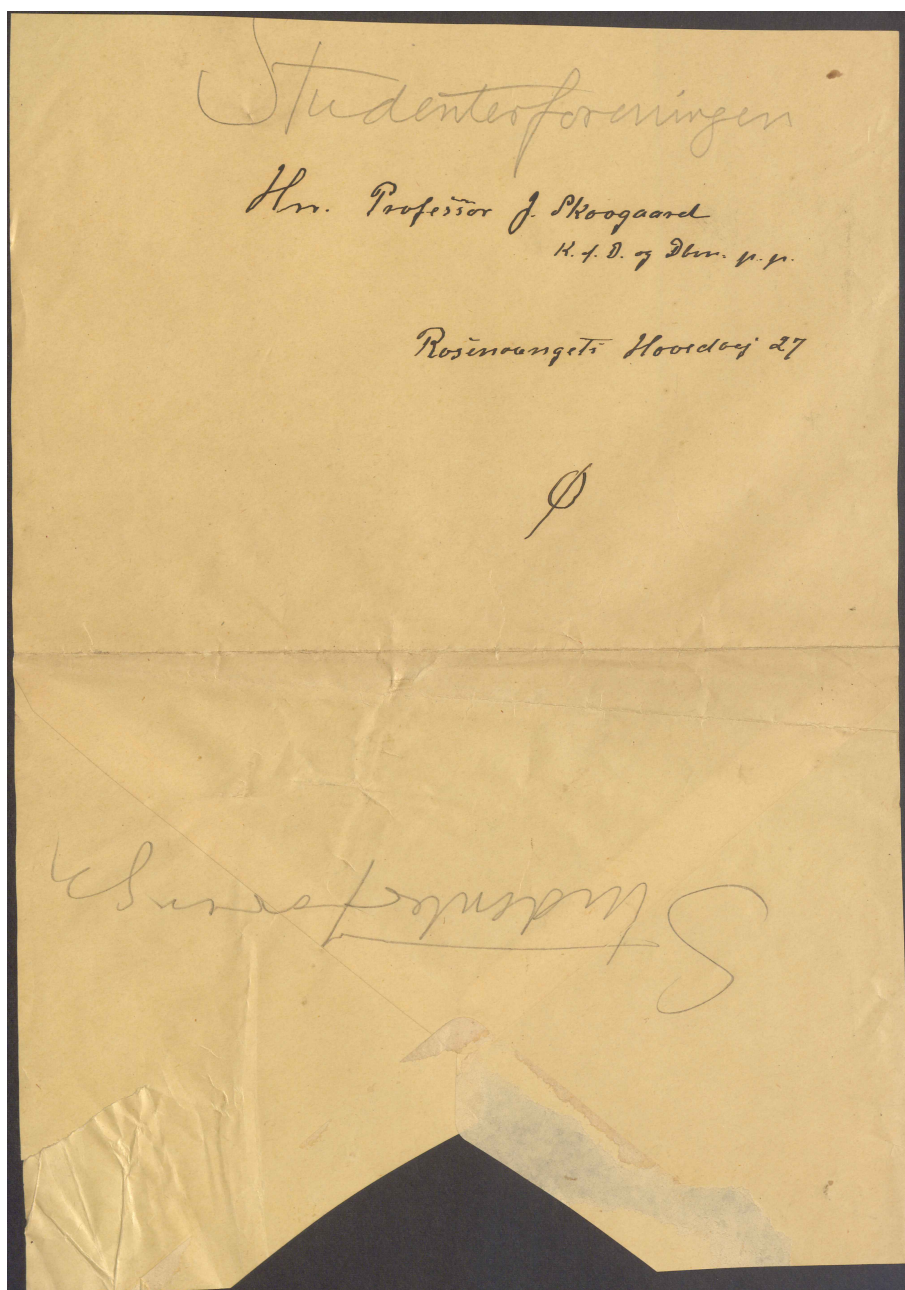 Studenterforeningen
Hrr. Professor J. Skovgaard
K. f. D. og Dbm. p. p.
Rosenvangets Hovedvej 27
Ø
Studenterforeningen